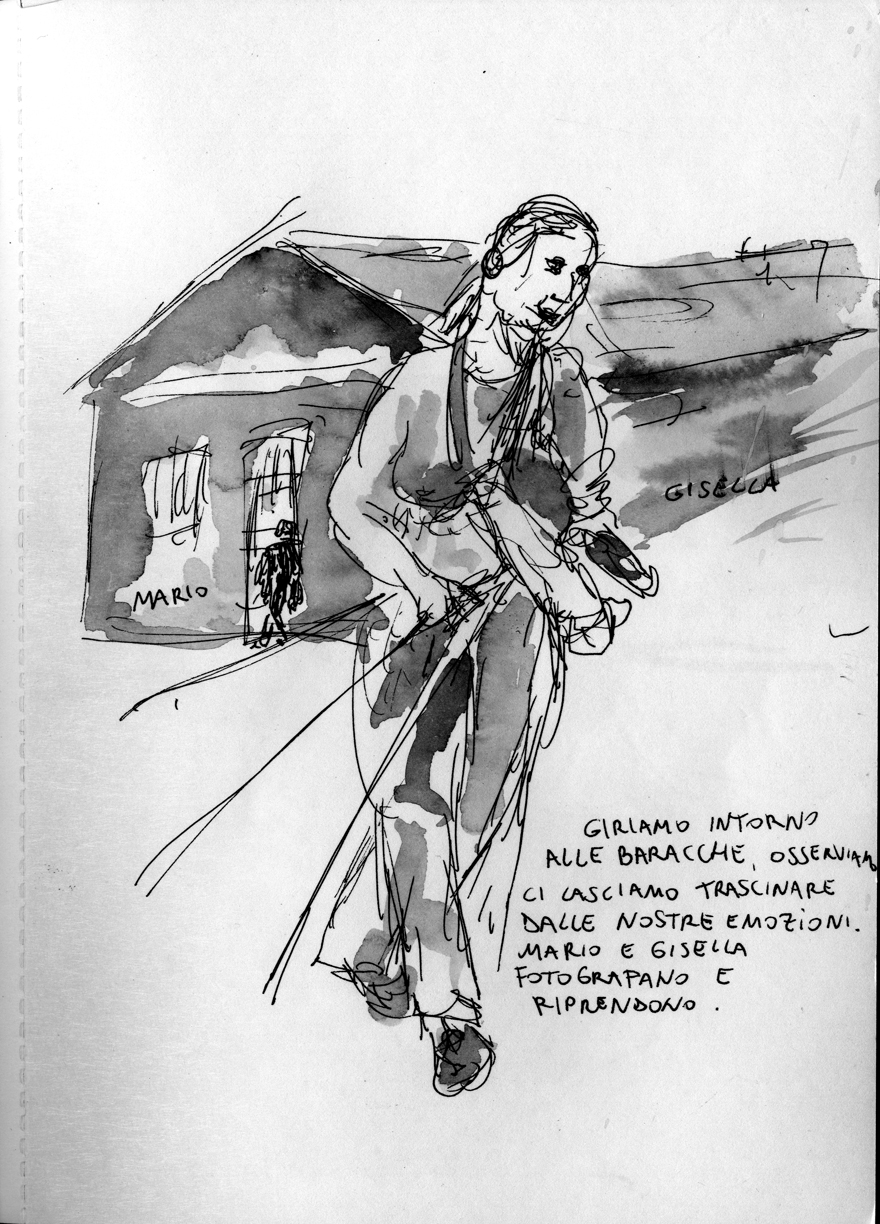 GISELLA
MARIO
GIRIAMO INTORNO
ALLE BARACCHE, OSSERVIAMO
CI LASCIAMO TRASCINARE
DALLE NOSTRE EMOZIONI.
MARIO E GISELLA
FOTOGRAFANO E
RIPRENDONO.